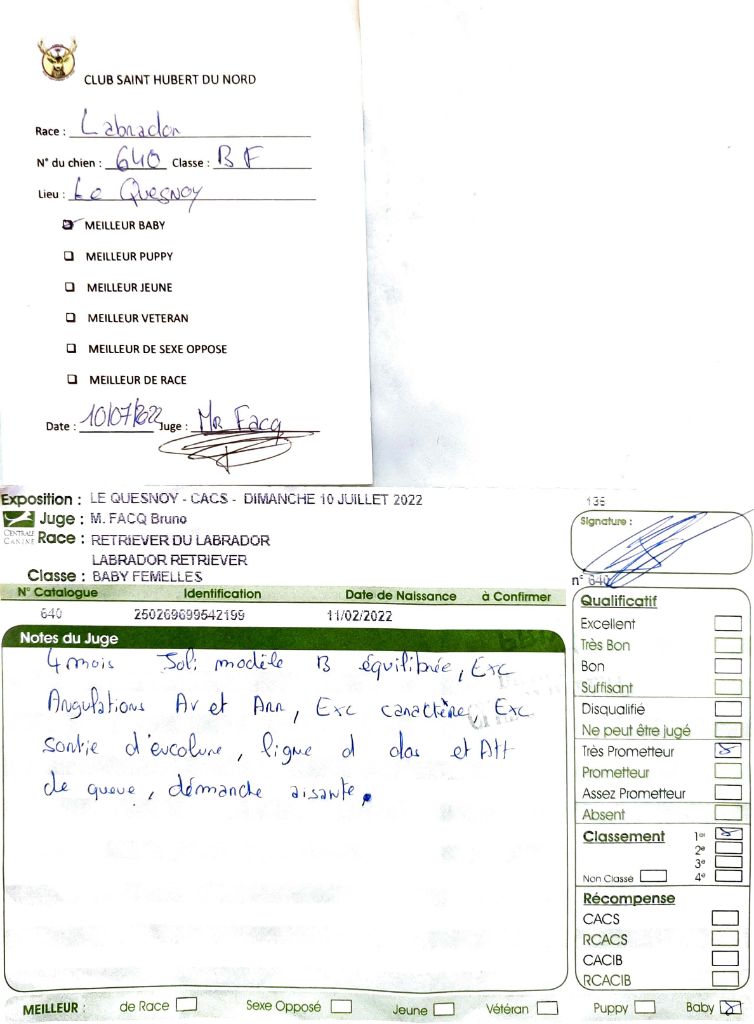 CLUB SAINT HUBERT DU NORD
Race : Labrador
N° du chien : 640 Classe : B F
Lieu : Le Quesnoy
MEILLEUR BABY
MEILLEUR PUPPY
MEILLEUR JEUNE
MEILLEUR VETERAN
MEILLEUR DE SEXE OPPOSE
MEILLEUR DE RACE
Date : 10/07/2022 Juge : Mr Facq
Exposition : LE QUESNOY - CACS - DIMANCHE 10 JUILLET 2022
135
CENTRALE CANINE
Juge : M. FACQ Bruno
Signature :
Race : RETRIEVER DU LABRADOR
LABRADOR RETRIEVER
Classe : BABY FEMELLES
n° 640
N° Catalogue Identification Date de Naissance à Confirmer
640 250269699542199 11/02/2022
Notes du Juge
4 mois Joli modèle B équilibrée, Exc
Angulations Av et Arr, Exc caractère, Exc
sortie d'encolure, ligne d dos et Att
de queue, démarche aisante.
Qualificatif
Excellent
Très Bon
Bon
Suffisant
Disqualifié
Ne peut être jugé
Très Prometteur
Prometteur
Assez Prometteur
Absent
Classement 1er
2e
3e
Non Classé 4e
Récompense
CACS
RCACS
CACIB
RCACIB
MEILLEUR : de Race Sexe Opposé Jeune Vétéran Puppy Baby